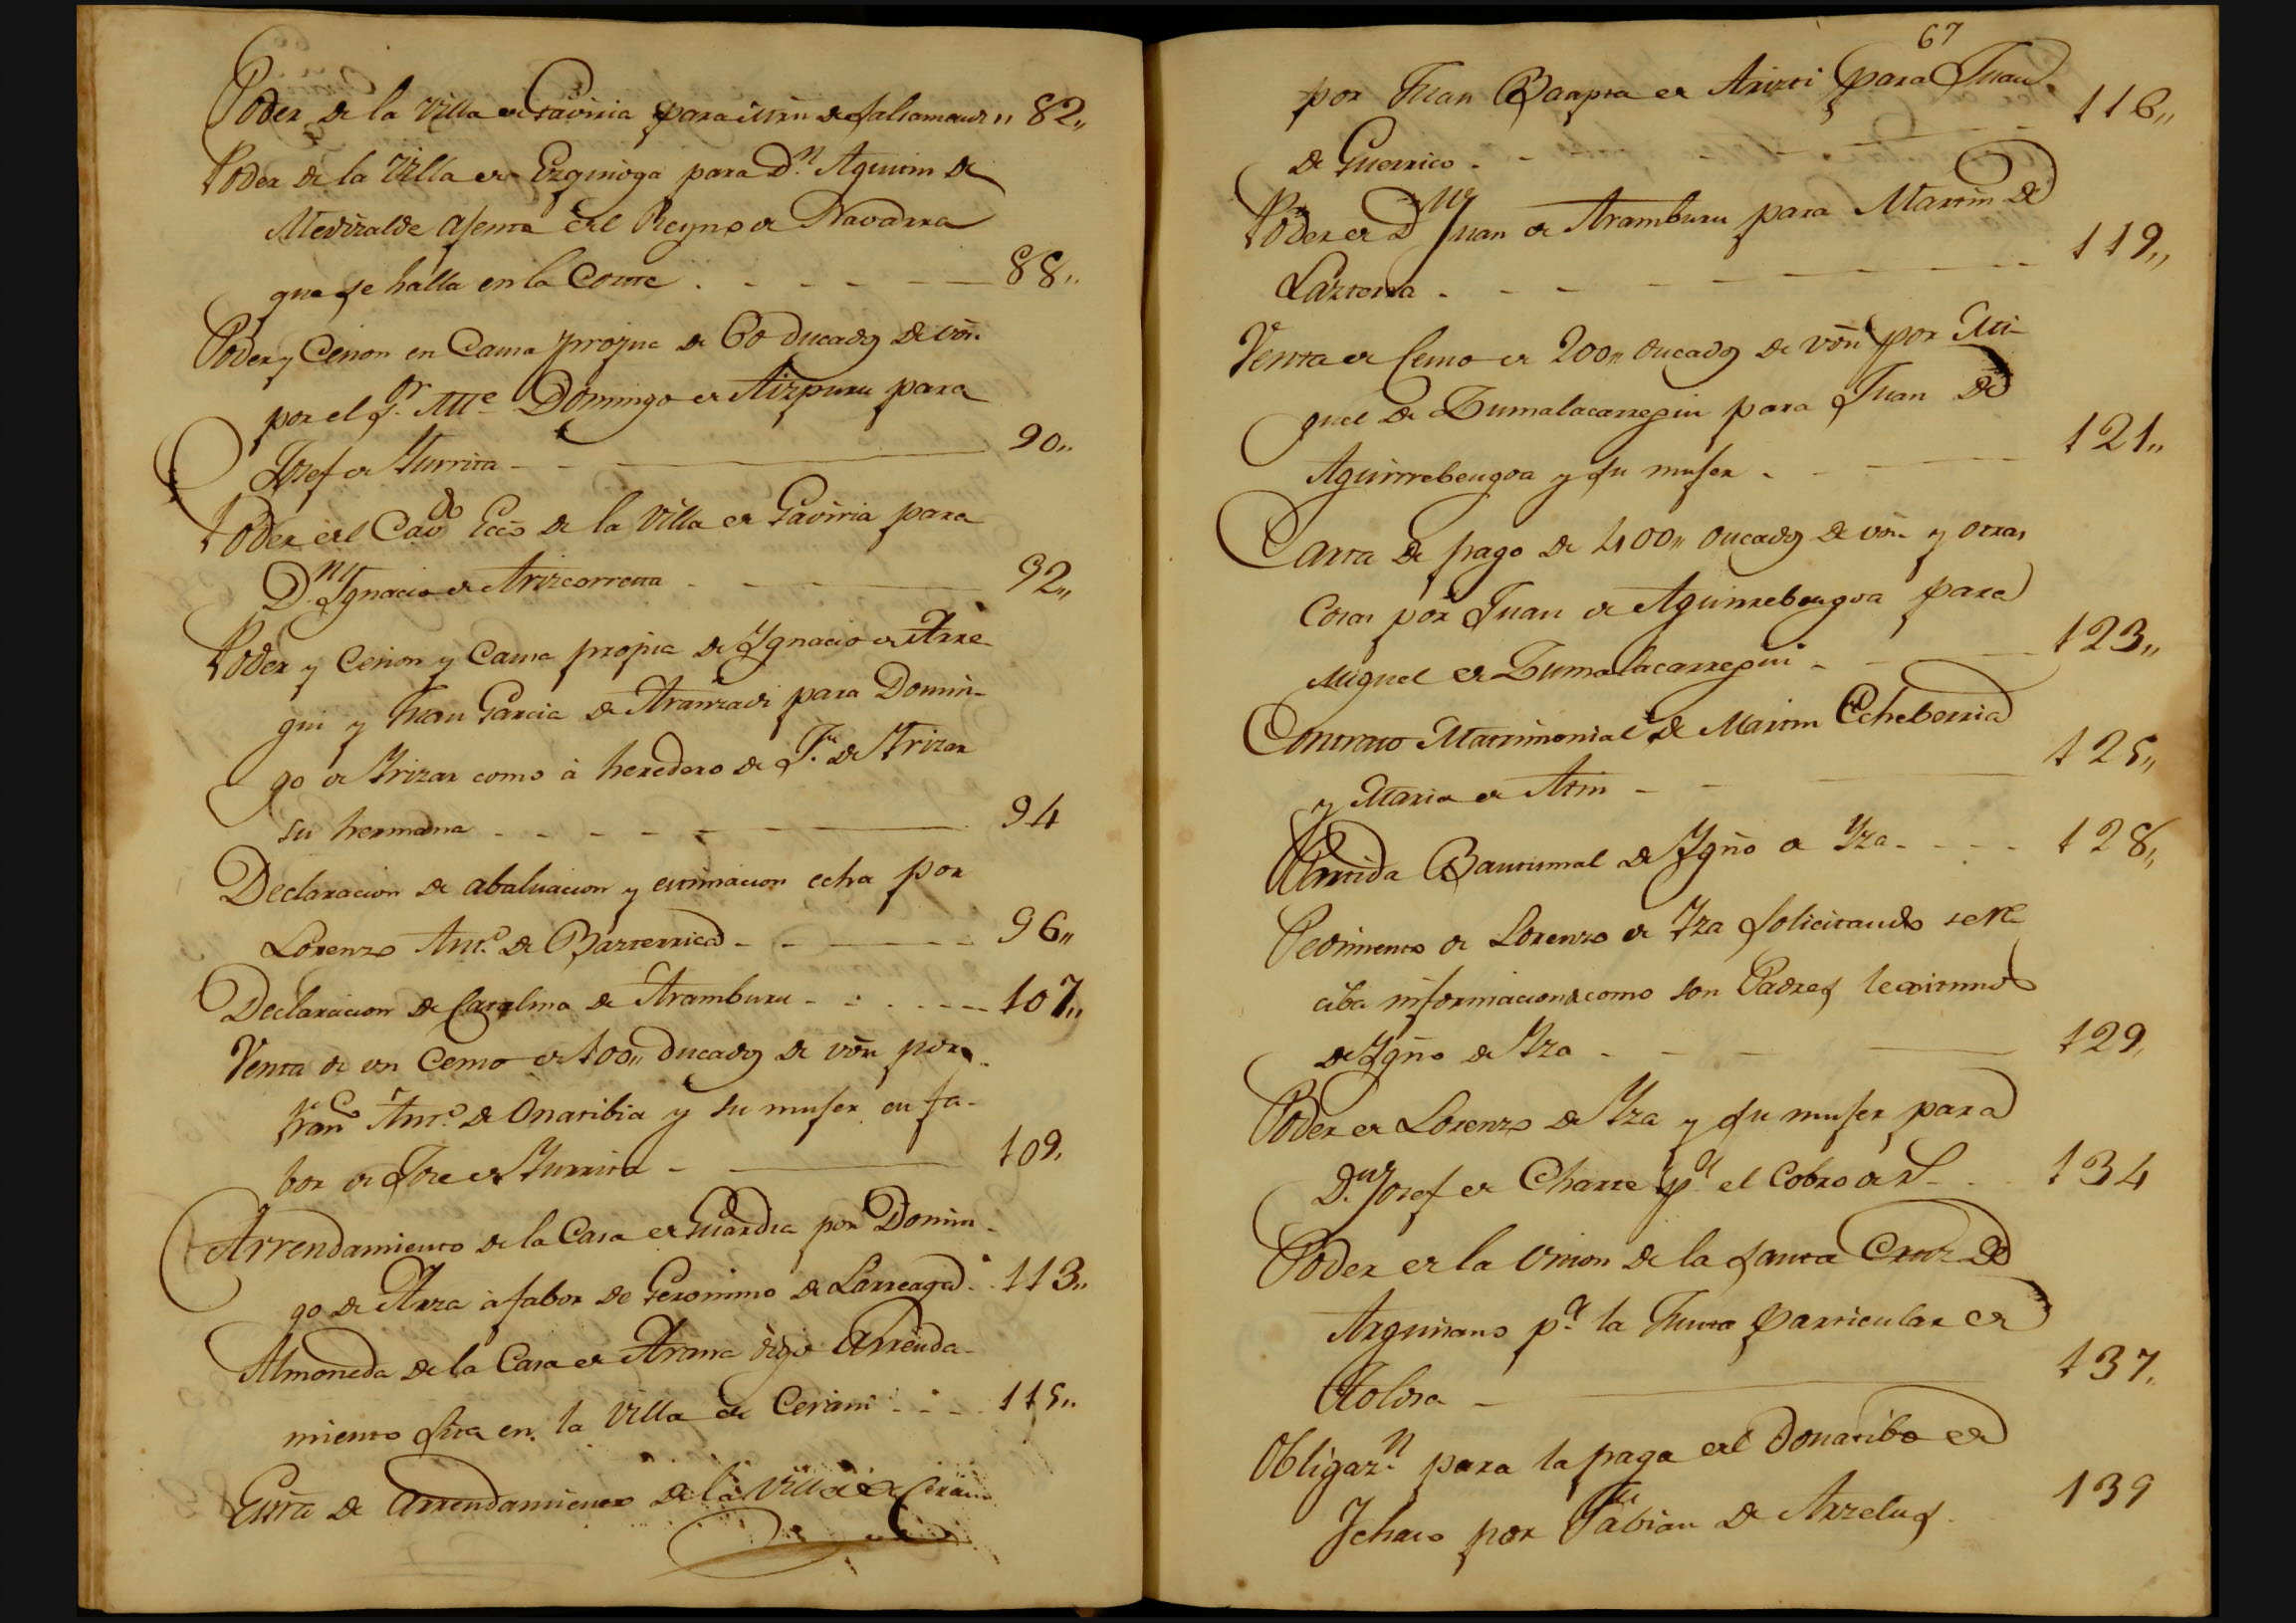 Poder de la Villa de Gaviria para Mrn de Salsamendi ,, 82,,
Poder de la Villa de Ezquioga para Dn. Aguitin de
Mendizalde Ajente del Reyno de Navarra
que se halla en la Corte . - - - - 88,,
Poder y Cesion en Causa propia de 60 ducados de von.
por el Sr. Me. Domingo de Aizpuru para
Josef de Yturrita - - 90,,
Poder del Cavdo Eccô de la Villa de Gaviria para
Dn. Ygnacio de Arizcorreta - - - 92,,
Poder y Cesion y Causa propia de Ygnacio de Arre-
gui y Juan Garcia de Aranzadi para Domin-
go de Yrizar como à heredero de de Yrizar
su hermana - - - - - 94
Declaracion de abaluacion y estimacion echa por
Lorenzo Anto. de Barrerrica - - - 96,,
Declaracion de Catalina de Aramburu - - - 107,,
Venta de vn Censo de 100,, ducados de von por
Franco Anto. de Onatibia y su muger en fa-
bor de Jose de Yturrita - 109,
Arrendamiento de la Casa de Guardia por Domin-
go de Arza à fabor de Geronimo de Larreaga . . 113,,
Almoneda de la Casa de Arana digo Arrenda-
miento sita en la Villa de Cerain - - - 115,,
Esra de Arrendamiento de la Villa de Cerain
67
por Juan Bauptta de Arizti para Juan 116,,
de Guerrico - - -
Poder de Dn Juan de Aramburu para Martin de
Lazterra - - - - 119,,
Venta de Censo de 200,, ducados de von por Mi-
guel de Zumalacarregui para Juan de
Aguirrrebengoa y su muger - - 121,,
Carta de pago de 400,, ducados de von y otras
Cosas por Juan de Aguirrebengoa para
Miguel de Zumalacarregui - - 123,,
Contrato Matrimonial de Martin Echeberria
y Maria de Atin - - 125,,
Partida Bautismal de Ygño de Yza - - - 128,
Pedimento de Lorenzo de Yza solicitando se re
ciba informacion de como son Padres lexitimos
de Ygño de Yza - - - 129,
Poder de Lorenzo de Yza y su muger para
Dn. Josef de Charre pa. el Cobro de - . 134
Poder de la Vnion de la Santa Cruz de
Arguiñano pa. la Junta particular de
Tolosa - 137,
Obligazn. para la paga del Donatibo de
Ichaso por Fabian de Arzelus . 139